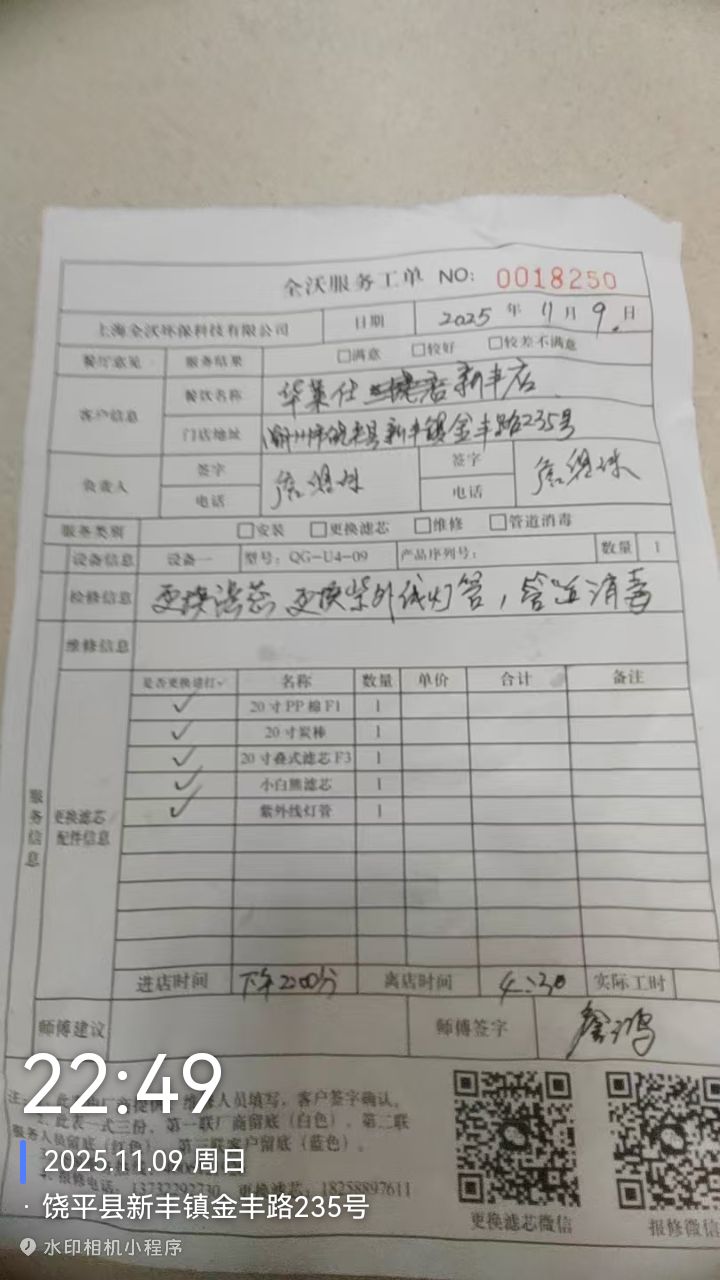 全沃服务工单 NO: 0018250
上海全沃环保科技有限公司 日期 2025 年 11 月 9 日
餐厅意见 服务结果 □满意 □较好 □较差不满意
客户信息 餐饮名称 华莱仕 新丰店
门店地址 潮州市饶平县新丰镇金丰路235号
负责人 签字 签字
电话 电话
服务类别 □安装 □更换滤芯 □维修 □管道消毒
设备信息 设备一 型号: QG-U4-09 产品序列号: 数量 1
检修信息 更换滤芯 更换紫外线灯管,管道消毒
维修信息
服务信息 更换滤芯配件信息
是否更换请打✓ 名称 数量 单价 合计 备注
✓ 20寸PP棉F1 1
✓ 20寸炭棒 1
✓ 20寸叠式滤芯F3 1
✓ 小白熊滤芯 1
✓ 紫外线灯管 1
进店时间 下午2:00分 离店时间 4:30 实际工时
师傅建议 师傅签字
注: 人员填写,客户签字确认。
此表一式三份,第一联厂商留底(白色)。第二联
服务人员留底(红色)。第三联客户留底(蓝色)。
维修电话: 13732292730 更换滤芯: 18258897611
更换滤芯微信 报修微信
22:49
2025.11.09 周日
· 饶平县新丰镇金丰路235号
水印相机小程序